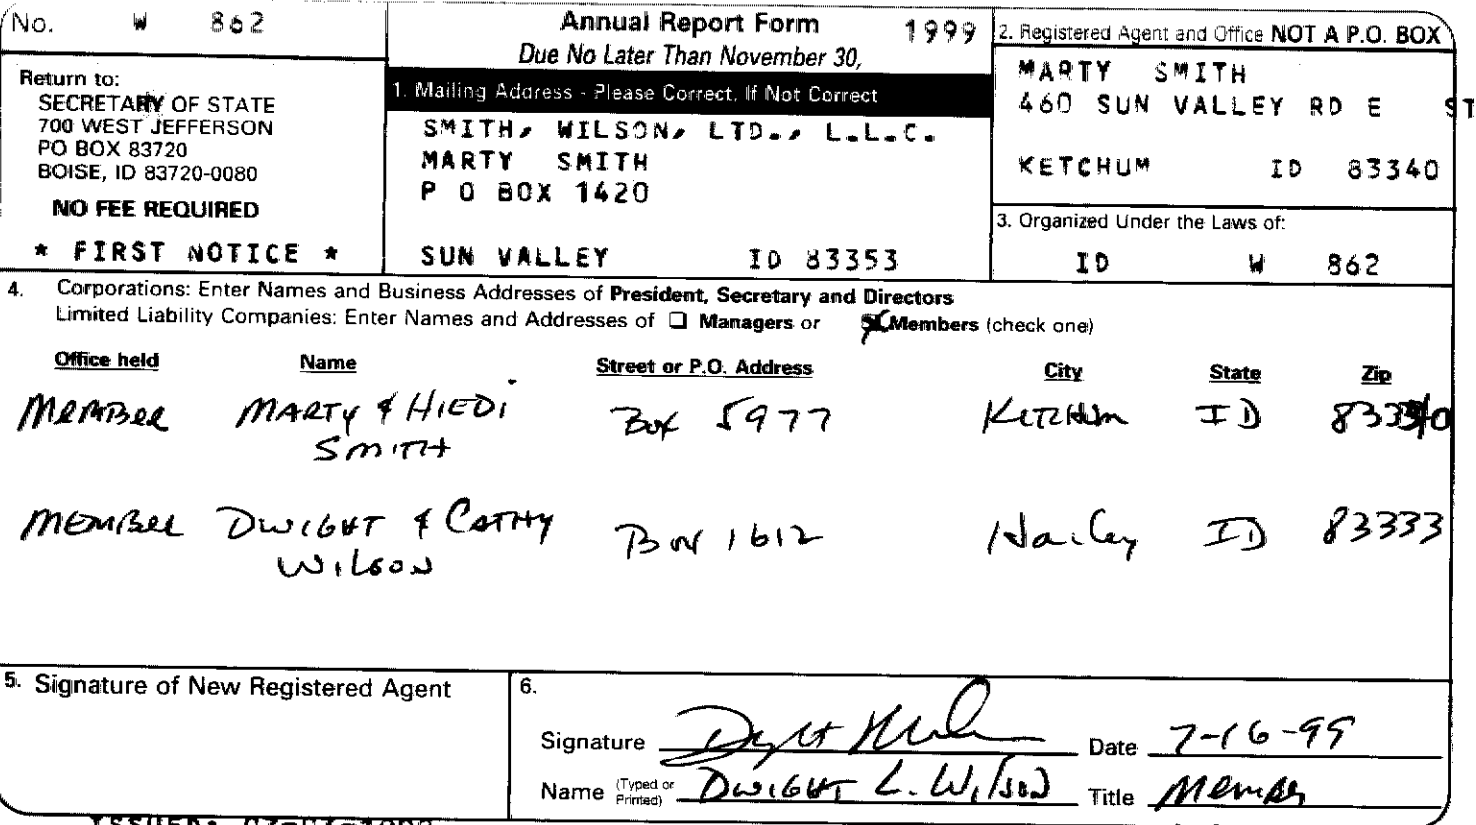 No. W 862
Annual Report Form 1999
Due No Later Than November 30,
Return to:
SECRETARY OF STATE
700 WEST JEFFERSON
PO BOX 83720
BOISE, ID 83720-0080
NO FEE REQUIRED
* FIRST NOTICE *
1. Mailing Address - Please Correct, If Not Correct
SMITH, WILSON, LTD., L.L.C.
MARTY SMITH
P O BOX 1420
SUN VALLEY ID 83353
2. Registered Agent and Office NOT A P.O. BOX
MARTY SMITH
460 SUN VALLEY RD E ST
KETCHUM ID 83340
3. Organized Under the Laws of:
ID W 862
4. Corporations: Enter Names and Business Addresses of President, Secretary and Directors
Limited Liability Companies: Enter Names and Addresses of Managers or Members (check one)
Office held Name Street or P.O. Address City State Zip
Member MARTY & HIEDI Box 5977 Ketchum ID 83340
SMITH
Member DWIGHT & CATHY Box 1612 Hailey ID 83333
WILSON
5. Signature of New Registered Agent
6.
Signature Date 7-16-99
Name (Typed or Printed) DWIGHT L. Wilson Title Member